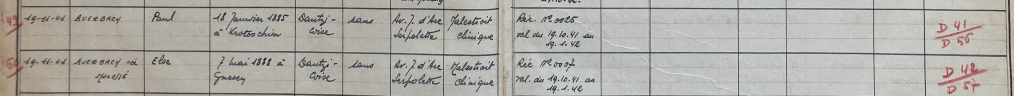 49 19-11-41 AUERBACH Paul 18 Janvier 1885 Dantzi- sans Av. J. d'Arc Malestroit Réc. N° 0026 D 41
à Krotoschin coise Serpolette clinique val du 19.10.41 au D 56
19.1.42
50 19-11-41 AUERBACH née Else 7 mai 1888 à Dantzi- sans Av. J. d'Arc Malestroit Réc N° 0007 D 42
Gnesen Coise Serpolette clinique val. du 19.10.41 au D 57
19.1.42